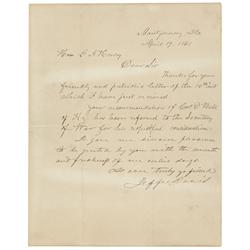 Montgomery, Ala
April 17, 1861
Hon G A Henry
Dear Sir
Thanks for your
friendly and patriotic letter of the 10th inst
which I have just received.
Your recommendation of
of Ky has been referred to the Secretary
of War for his respectful consideration.
It gave me sincere pleasure
to be greeted by you with the
and of our earlier days.
As ever truly yr friend
Jeffn Davis